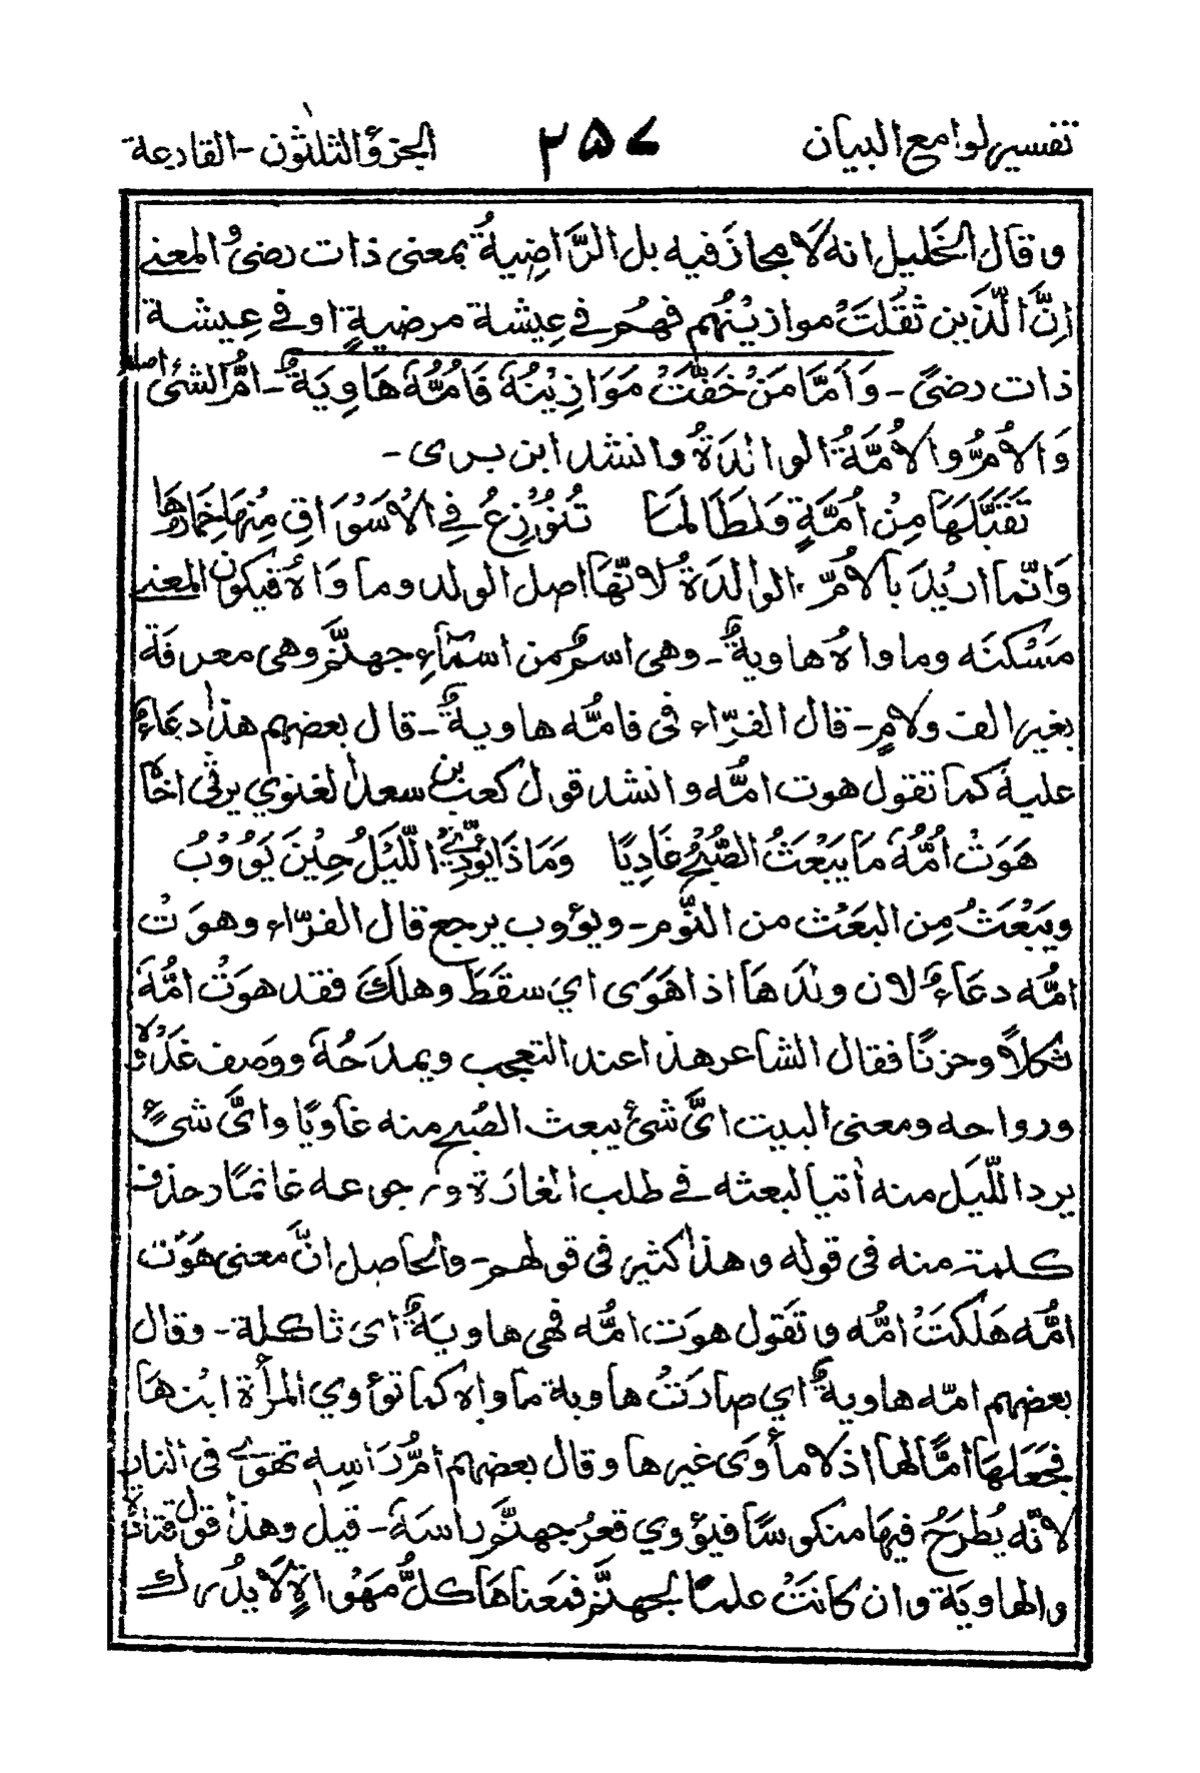 تفسير لوامع البيان ٢٥٧ الجزؤ الثلثون - القارعة
وقال الخليل انه لَا مجازَ فيه بل الرَّاضِيةُ بمعنى ذات رضىً والمعنى
اِنَّ الّذَين ثقُلَتْ موازينُهم فهُم في عِيشة مرضيةٍ او في عِيشة
ذات رضىً - وَاَمَّا مَنْ خَفَّتْ مَوَازِيْنُهٗ فَاُمُّهٗ هَاوِيَةٌ - اُمُّ الشئ اصله
وَالاُمُّ والاُمَّةُ الوالدَةُ وانشد ابن برى -
تَقَبَّلَهَا مِنْ اُمَّةٍ وَلطَالمَا تُنُوْزِعُ فِي الْاَسْوَاقِ مِنْهَا خِمَارُهَا
وَانّما اريْدَ بالاُمّ الوالدَةُ لانّهَا اصل الولد وماوَاهُ فيكون المعنى
مَسْكنَه وماواهُ هاويةٌ - وهى اسمٌ من اسمَآءِ جهنَّم وهى معرفَة
بغير الف ولامٍ - قال الفرّاء فى فامُّه هاويةٌ - قال بعضهم هذا دعَاءٌ
عليهِ كما تقول هوت امُّه وانشد قول كعب بن سعد الغنوي يرثى اخاه
هَوَتْ اُمُّهٗ مَا يَبْعَثُ الصُّبْحُ غَادِيًا وَمَاذَا يُؤدِّى الَّليْلُ حِيْنَ يَؤُوْبُ
ويَبْعَثُ مِن البَعْث من النَّوْم - ويؤوب يرجع قال الفرّاء وهوَتْ
امُّه دعَاءٌ لان ولدَهَا اذا هَوَى اي سقَطَ وهلَكَ فقد هوَتْ امُّهٗ
ثكلاً وحزنًا فقال الشاعر هذا عند التعجب ويمدَحُهٗ ووَصف غَدُوَّهٗ
ورواحه ومعنى البيت ايَّ شئ يبعث الصُبح منه غاويًا وايَّ شئٍ
يرد اللَّيَل منه أتيا لبعثه في طلب الغارَة ورجوعه غانمًا وحذف
كلمة منه فى قوله وهذا كثير فى قولهم - والحاصل انَّ معنى هَوَت
امُّه هَلَكَتْ امُّه وتقول هوَت امُّه فهى هاويَةٌ اى ثاكلة - وقال
بعضهم امّه هاويةٌ اي صارَتْ هاوية ماواه كما تؤوي المرأة ابنَها
فجَعَلَهَا امًّا لها اذ لا مأوَى غيرها وقال بعضهم اُمُّ رَاسِه تهوى فى النار
لانّه يُطرَحُ فيهَا منكوسًا فيؤوي قعرُ جهنَّم راسَهٗ - قيل وهذا قول قتادة
والهاويَة وان كانَتْ علمًا لجهنَّم فمعناهَا كلُّ مَهْواةٍ لَا يدُرك